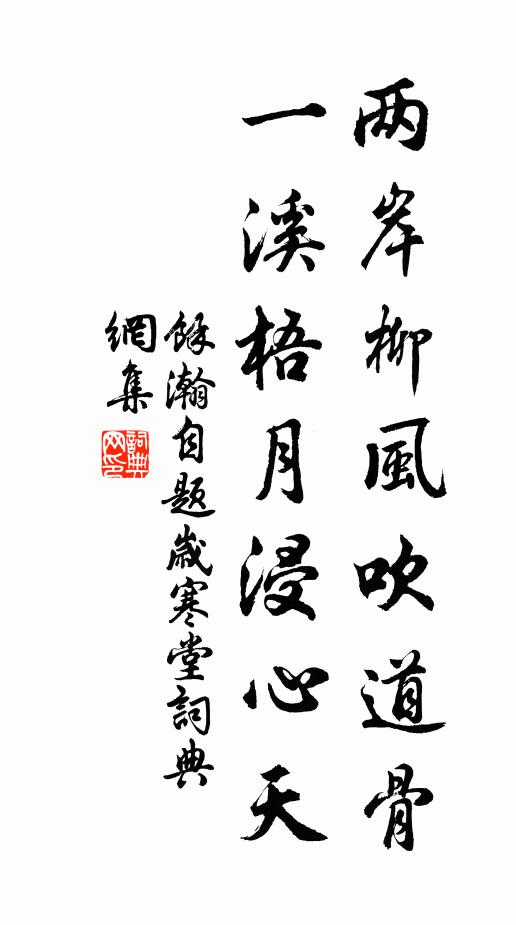 两岸柳風吹道骨
一溪梧月浸心天
餘瀚自題歲寒堂詞典
網集
詞典網印